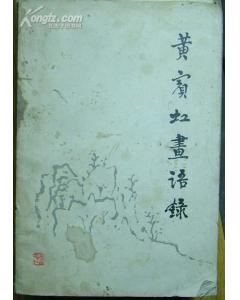 黄賓虹畫語錄
孔夫子旧书网